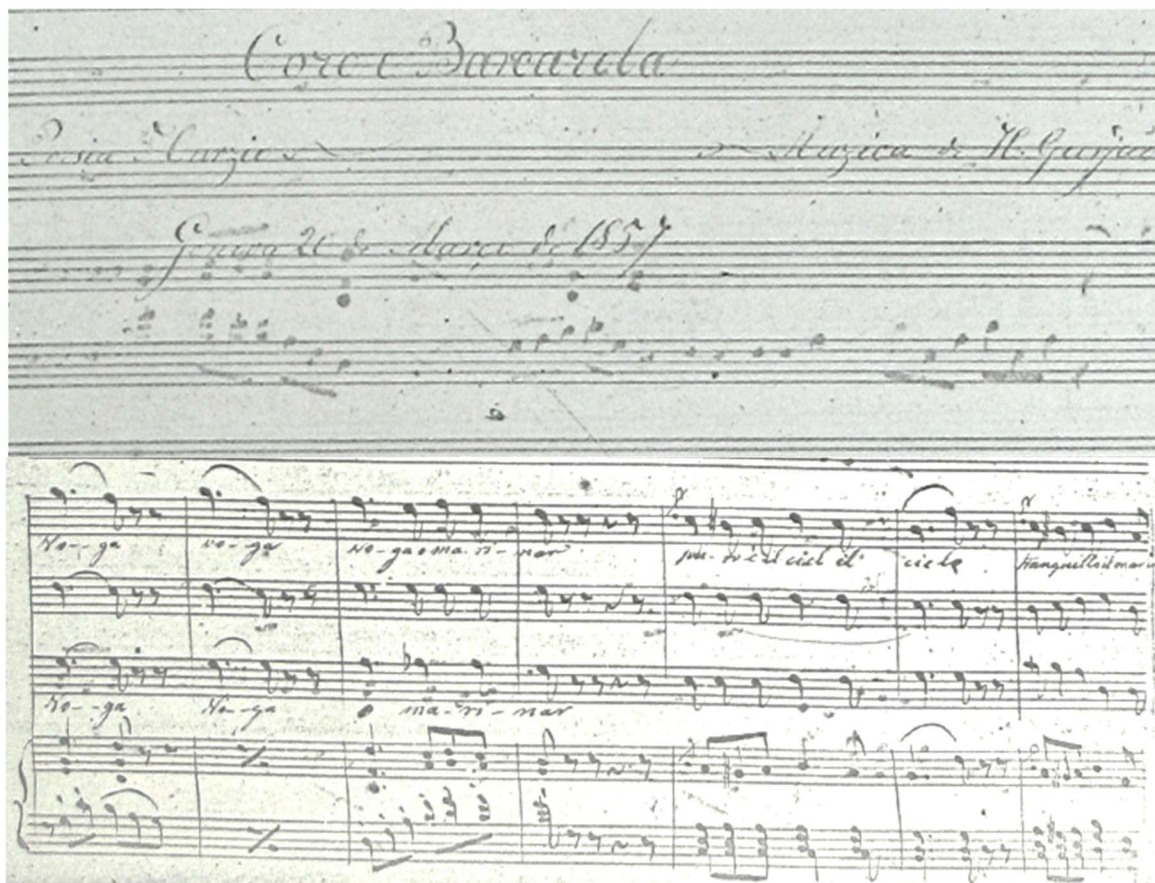 Coro e Barcarola
Poesia Curzio Muzica de H. Gurjaõ
Genova de Março de 1857
Vo--ga vo--ga Vo-ga o ma-ri-nar pu-ro è il ciel il cielo tranquillo il mar
Vo--ga Vo-ga o ma-ri-nar